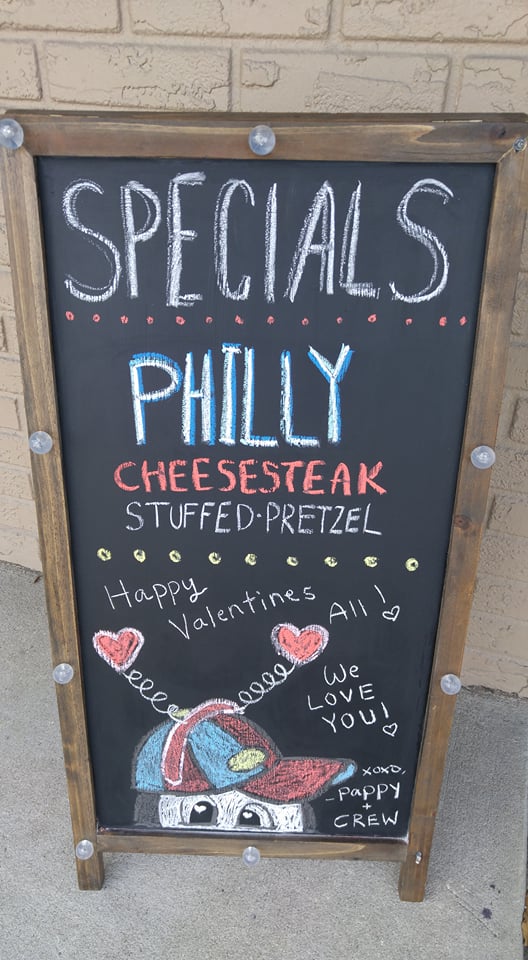 SPECIALS
PHILLY
CHEESESTEAK
STUFFED·PRETZEL
Happy Valentines All!
We
LOVE
YOU!
XOXO,
-PAPPY
+
CREW